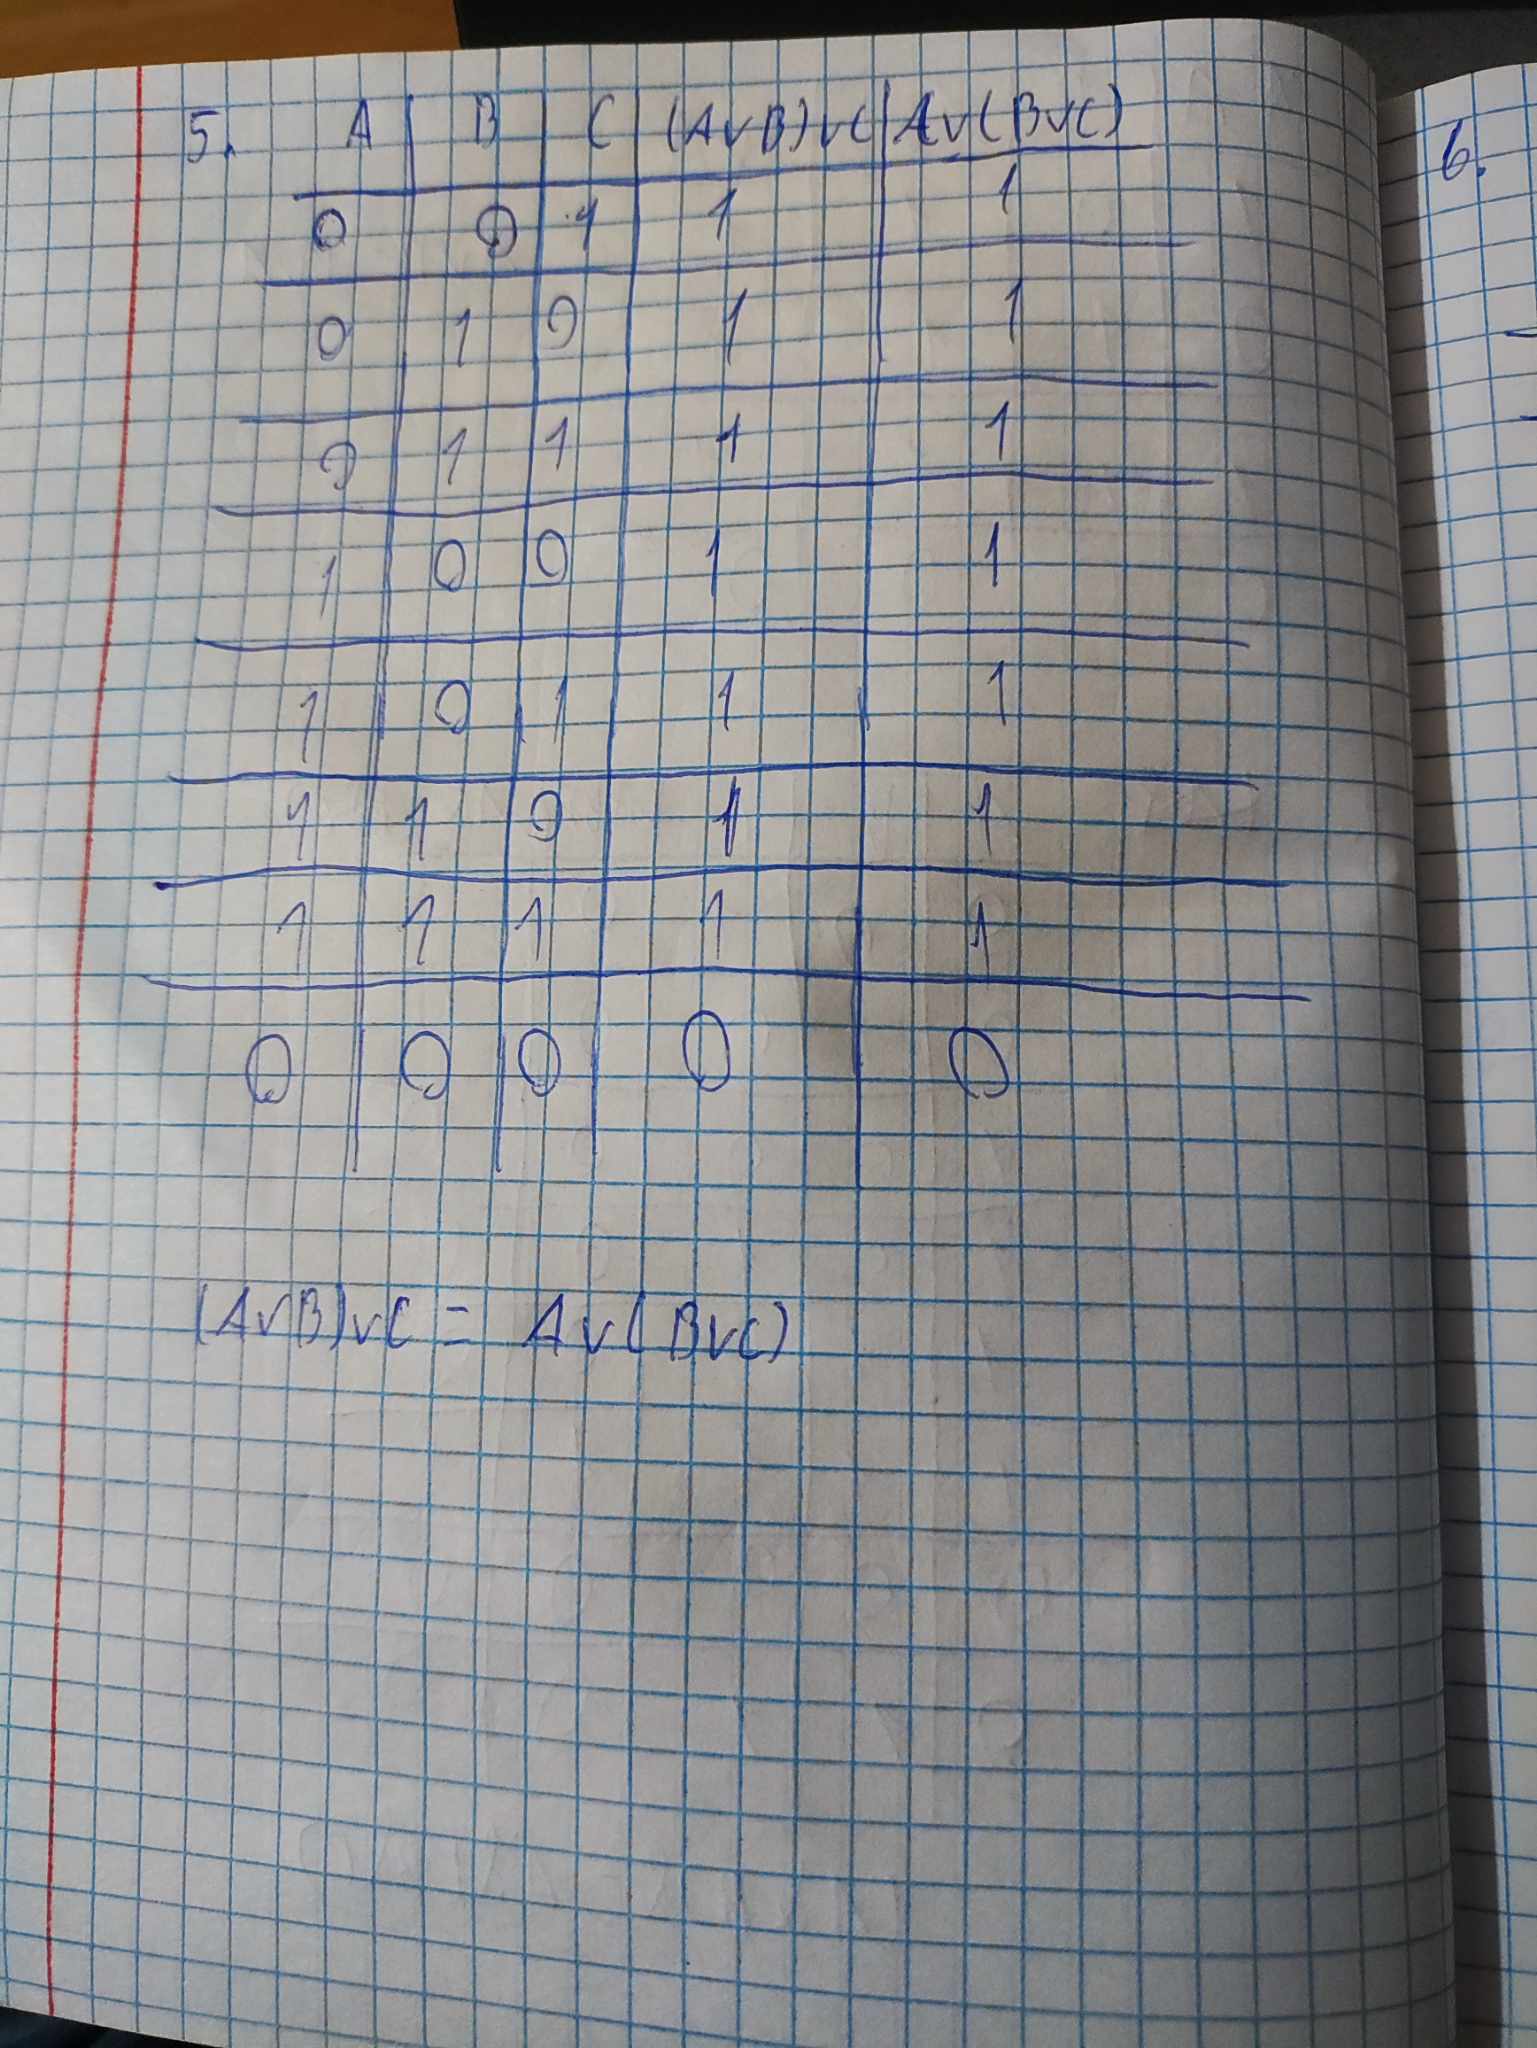 5. A B C (AvB)vC Av(BvC)
0 0 1 1 1
0 1 0 1 1
0 1 1 1 1
1 0 0 1 1
1 0 1 1 1
1 1 0 1 1
1 1 1 1 1
0 0 0 0 0
(AvB)vC = Av(BvC)
6.